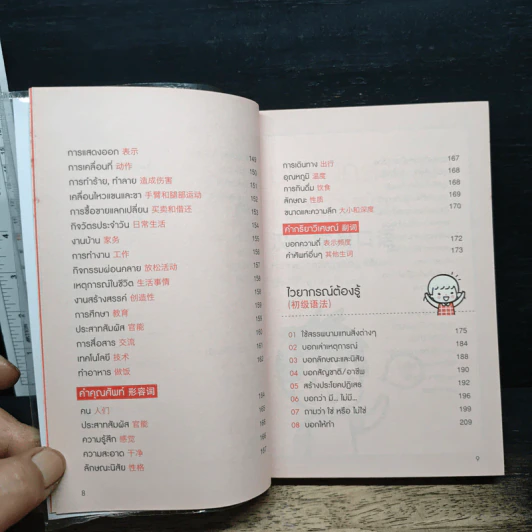 การแสดงออก 表示 149
การเคลื่อนที่ 动作 150
การทำร้าย, ทำลาย 造成伤害 151
เคลื่อนไหวแขนและขา 手臂和腿部运动 151
การซื้อขายแลกเปลี่ยน 买卖和借还 152
กิจวัตรประจำวัน 日常生活 153
งานบ้าน 家务 154
การทำงาน 工作
กิจกรรมผ่อนคลาย 放松活动
เหตุการณ์ในชีวิต 生活事情
งานสร้างสรรค์ 创造性
การศึกษา 教育
ประสาทสัมผัส 官能
การสื่อสาร 交流
เทคโนโลยี 技术
ทำอาหาร 做饭
คำคุณศัพท์ 形容词
คน 人们
ประสาทสัมผัส 官能
ความรู้สึก 感觉
ความสะอาด 干净
ลักษณะนิสัย 性格
8
การเดินทาง 出行 167
อุณหภูมิ 温度 168
การกินดื่ม 饮食 168
ลักษณะ 性质 169
ขนาดและความลึก 大小和深度 170
คำกริยาวิเศษณ์ 副词
บอกความถี่ 表示频度 172
คำศัพท์อื่นๆ 其他生词 173
ไวยากรณ์ต้องรู้
(初级语法)
01 ใช้สรรพนามแทนสิ่งต่างๆ 175
02 บอกเล่าเหตุการณ์ 184
03 บอกลักษณะและนิสัย 188
04 บอกสัญชาติ/อาชีพ 190
05 สร้างประโยคปฏิเสธ 192
06 บอกว่า มี... ไม่มี... 196
07 ถามว่า ใช่ หรือ ไม่ใช่ 199
08 บอกให้ทำ 209
9